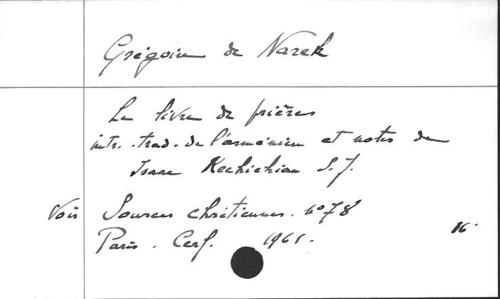 Grégoire de Narek
Le livre de prières
intr. trad. de l'arménien et notes de
Isaac Kechichian S.J.
Voir Sources chrétiennes. n° 78
Paris. Cerf. 1961. 16